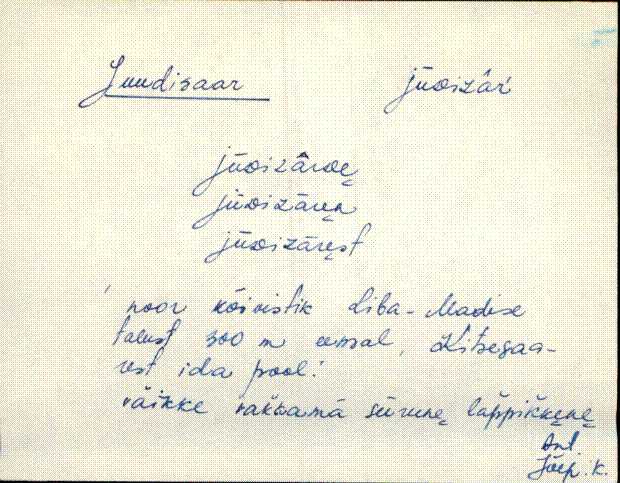 Juudisaar jūᴅizâr
jūᴅizârᴅę
jūᴅizāręn
jūᴅizāręst
noor kõivistik Liba-Madise
talust 300 m eemal, Kitsesaa-
rest ida pool.
väikke rakkamā sūrune lappikkene
Ant.
Jõep. k.